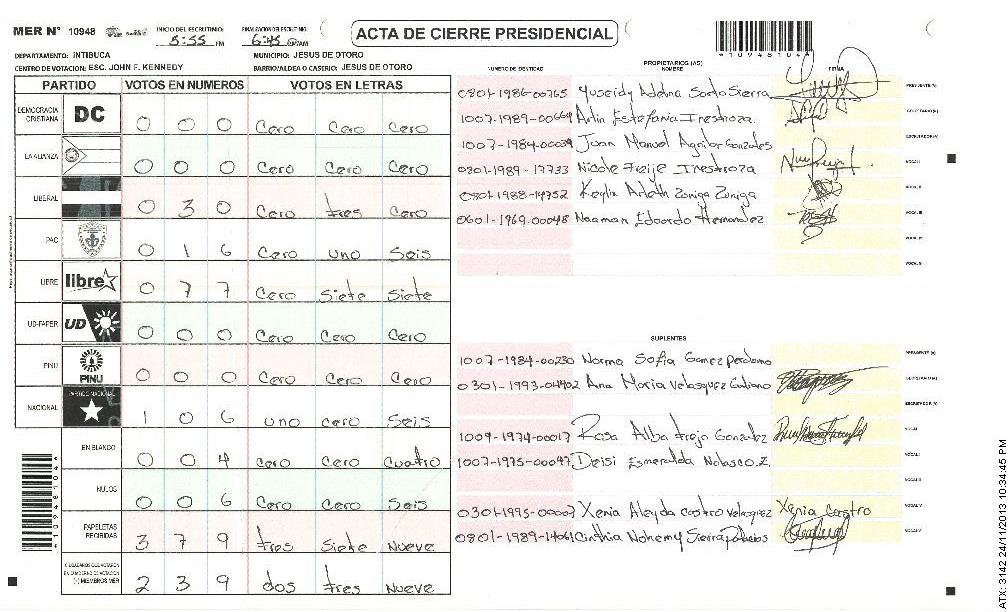 MER N° 10948 INICIO DEL ESCRUTINIO: 5:55 PM FINALIZACION DEL ESCRUTINIO: 6:45
ACTA DE CIERRE PRESIDENCIAL
DEPARTAMENTO: INTIBUCA MUNICIPIO: JESUS DE OTORO
CENTRO DE VOTACION: ESC. JOHN F. KENNEDY BARRIO/ALDEA O CASERIO: JESUS DE OTORO
PARTIDO VOTOS EN NUMEROS VOTOS EN LETRAS
DEMOCRACIA CRISTIANA DC 0 0 0 Cero Cero Cero
LA ALIANZA 0 0 0 Cero Cero Cero
LIBERAL 0 3 0 Cero tres Cero
PAC 0 1 6 Cero uno Seis
LIBRE libre 0 7 7 Cero Siete Siete
UD-FAPER UD 0 0 0 Cero Cero Cero
PINU PINU 0 0 0 Cero Cero Cero
NACIONAL PARTIDO NACIONAL 1 0 6 uno cero Seis
EN BLANCO 0 0 4 Cero Cero Cuatro
NULOS 0 0 6 Cero Cero Seis
PAPELETAS RECIBIDAS 3 7 9 tres Siete Nueve
CIUDADANOS QUE VOTARON
EN CUADERNO DE VOTACION
(+) MIEMBROS MER 2 3 9 dos tres Nueve
*10948104*
PROPIETARIOS (AS)
NUMERO DE IDENTIDAD NOMBRE FIRMA
0801-1986-00765 Adelna Soto Sierra PRESIDENTE (A)
1007-1989-00664 Arlin Estefania Inestroza SECRETARIO (A)
1007-1984-00039 Juan Manuel Aguilar Gonzales ESCRUTADOR (A)
0801-1989-17733 Nicole Freije Inestroza VOCAL I
0801-1988-14752 Keylin Arleth Zuniga Zuniga VOCAL II
0601-1969-00048 Naaman Edoardo Hernandez VOCAL III
VOCAL IV
VOCAL V
SUPLENTES
1007-1984-00230 Norma Sofia Gomez Perdomo PRESIDENTE (A)
0301-1993-04402 Ana Maria Velasquez Galiano SECRETARIO (A)
ESCRUTADOR (A)
1009-1974-00017 Rosa Alba Trejo Gonzalez VOCAL I
1007-1975-00047 Deisi Esmeralda Nolasco.Z. VOCAL II
VOCAL III
0301-1995-00007 Xenia Aleyda Castro Velasquez Xenia Castro VOCAL IV
0801-1989-14061 Cinthia Nohemy Sierra Palacios VOCAL V
*10948104*
ATX: 3142 24/11/2013 10:34:45 PM